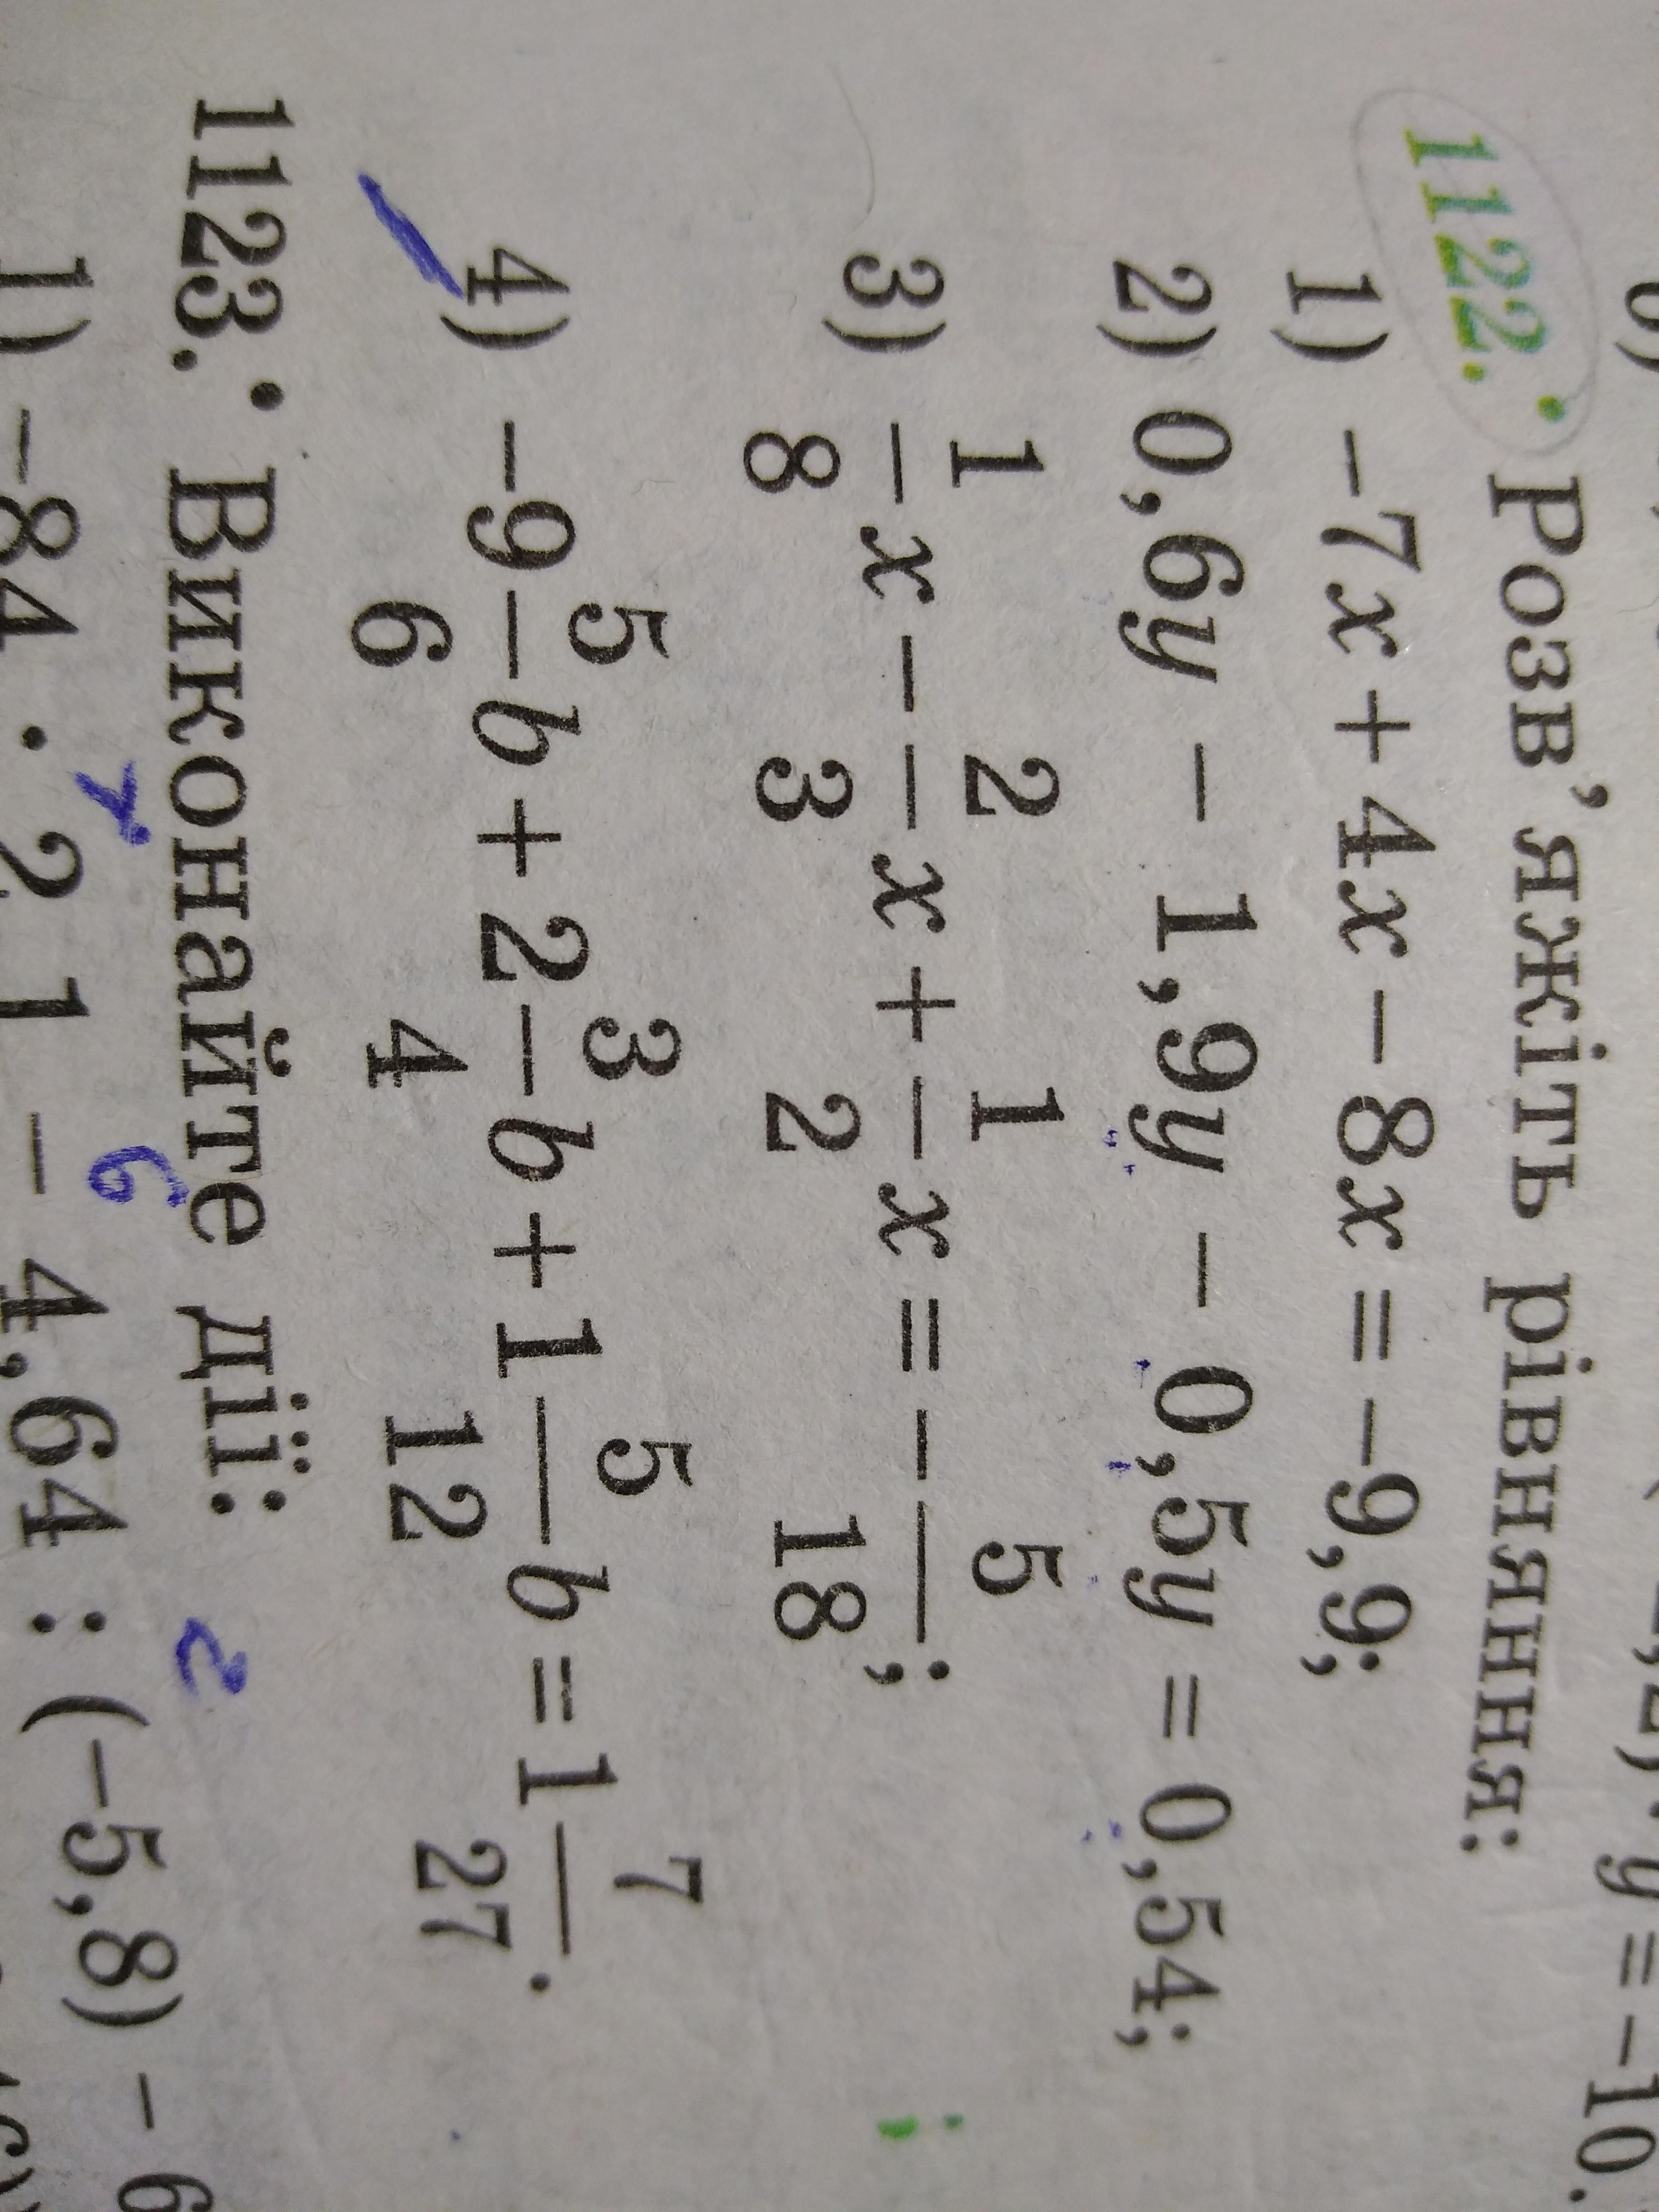 6)
y = −10.
1122.• Розв'яжіть рівняння:
1) −7x + 4x − 8x = −9,9;
2) 0,6y − 1,9y − 0,5y = 0,54;
3) 1/8 x − 2/3 x + 1/2 x = − 5/18;
4) −9 5/6 b + 2 3/4 b + 1 5/12 b = 1 7/27.
1123.• Виконайте дії:
1) −84 · 2 1 − 4,64 : (−5,8) − 6